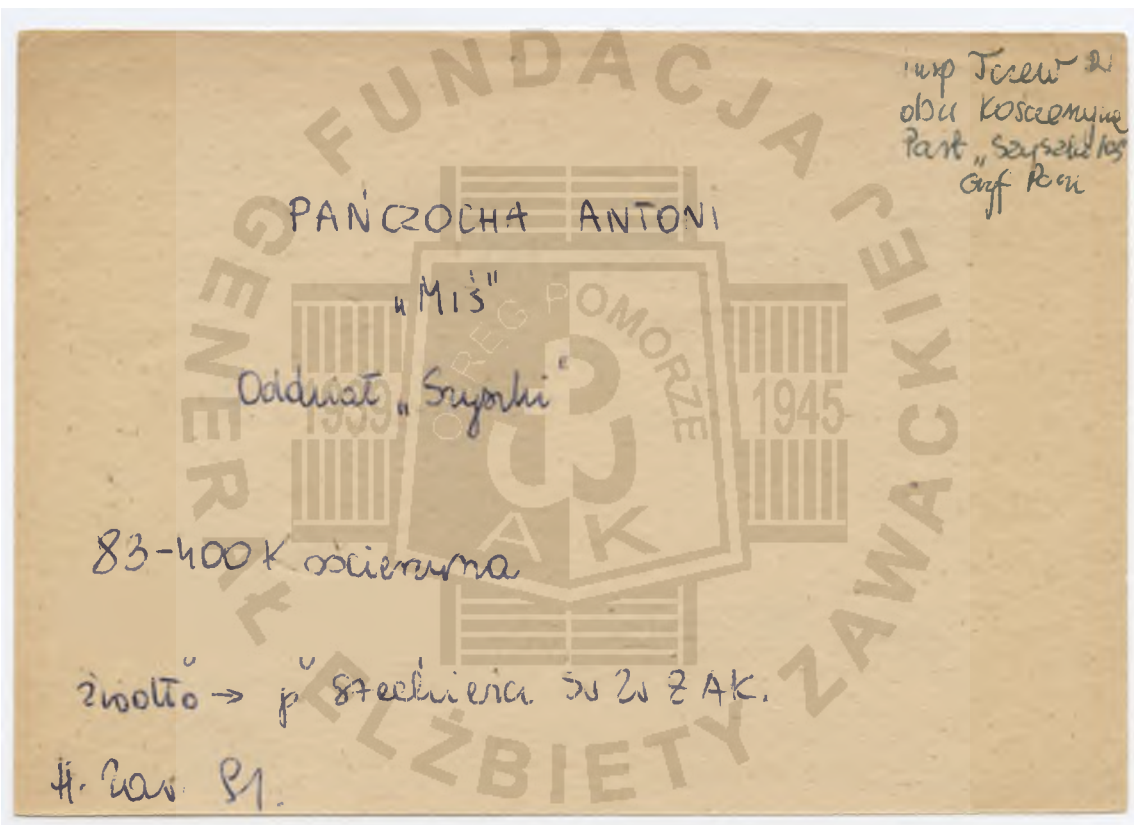 insp Tczew
obw Kościerzyna
Part „Szyszki"
Gryf Pom
PAŃCZOCHA ANTONI
„Miś"
Oddział „Szyszki"
83-400 Kościerzyna
źródło → p Ś ZŻAK.
H. 91.
FUNDACJA GENERAŁ ELŻBIETY ZAWACKIEJ
OKRĘG POMORZE
1939
1945
AK